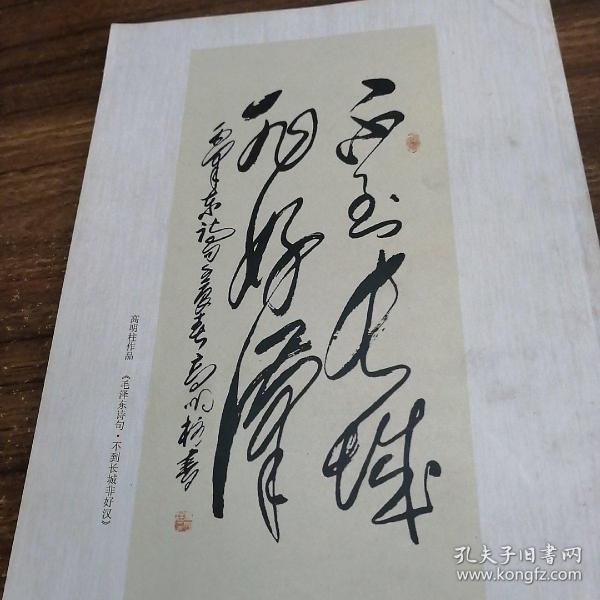 不到长城
非好汉
毛泽东诗句
高明柱书
高明柱作品 《毛泽东诗句·不到长城非好汉》
孔夫子旧书网
www.kongfz.com